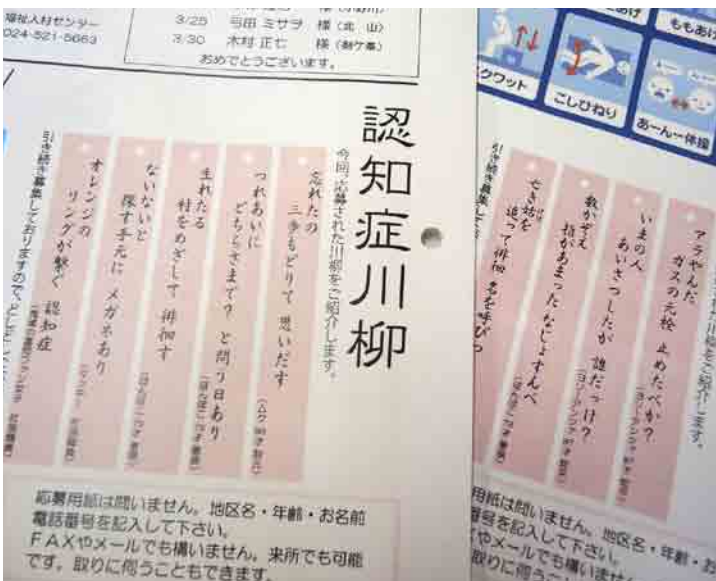 福祉人材センター
024-521-5663
3/25 弓田 ミサヲ 様（北 山）
3/30 木村 正七 様
おめでとうございます。
認知症川柳
今回、応募された川柳をご紹介します。
忘れたの
三歩もどりて 思いだす
つれあいに
どちらさまで？ と問う日あり
生れたる
村をめざして 徘徊す
ないないと
探す手元に メガネあり
オレンジの
リングが繋ぐ 認知症
引き続き募集しておりますので、
応募用紙は問いません。地区名・年齢・お名前
電話番号を記入して下さい。
FAXやメールでも構いません。来所でも可能
です。取りに伺うこともできます。
ももあげ
クワット
こしひねり
あーんー体操
た川柳をご紹介します。
アラやんだ
ガスの元栓 止めたべか？
いまの人
あいさつしたが 誰だっけ？
数かぞえ
指があまった なじょすんべ
亡き姑を
追って徘徊 名を呼びつ
引き続き募集して
用紙は問いません。地区名・年齢・お
番号を記入して下さい。
やメールでも構いま
取りに伺うこ